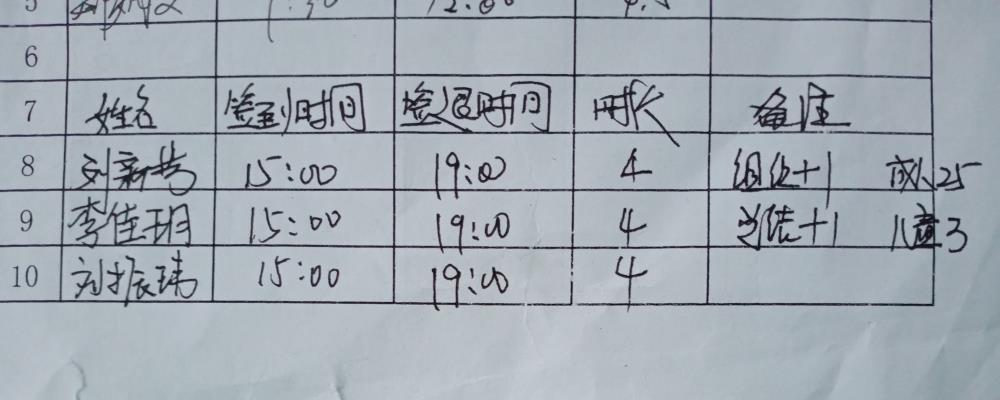 5 12:00
6
7 姓名 签到时间 签退时间 时长 备注
8 刘新 15:00 19:00 4 组织+1 成人25
9 李佳玥 15:00 19:00 4 +1 儿童3
10 刘振玮 15:00 19:00 4